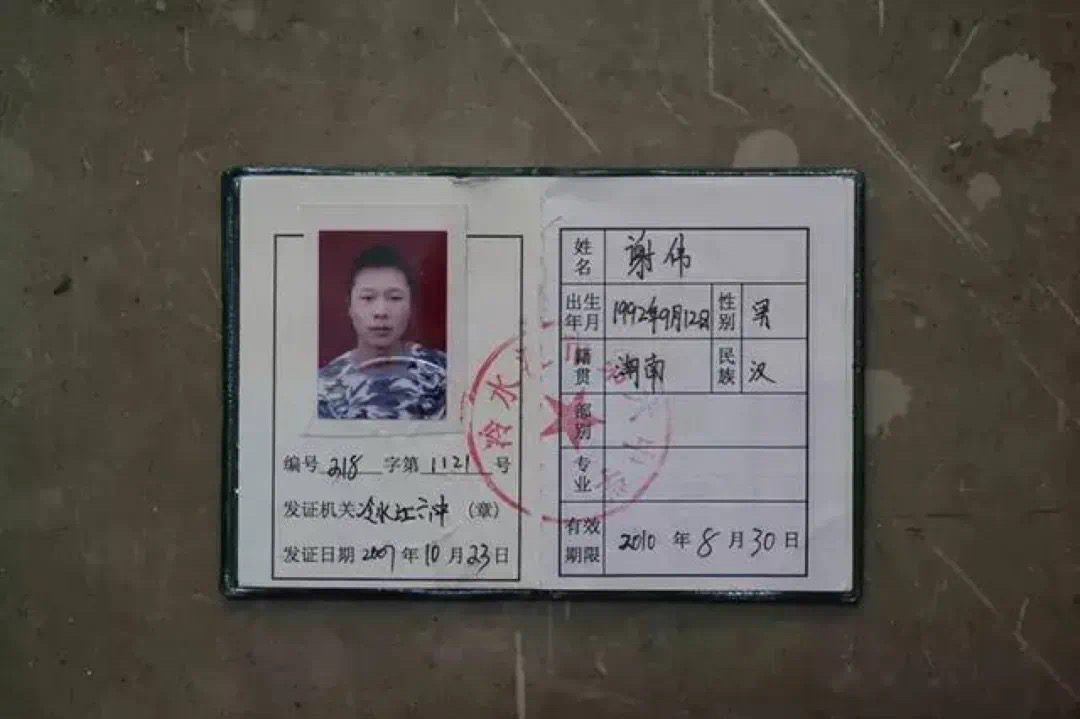 编号 218 字第 1121 号
发证机关 冷水江六中 (章)
发证日期 2007 年 10 月 23 日
姓名 谢伟
出生年月 1992年9月12日 性别 男
籍贯 湖南 民族 汉
部别
专业
有效期限 2010 年 8 月 30 日
冷水江